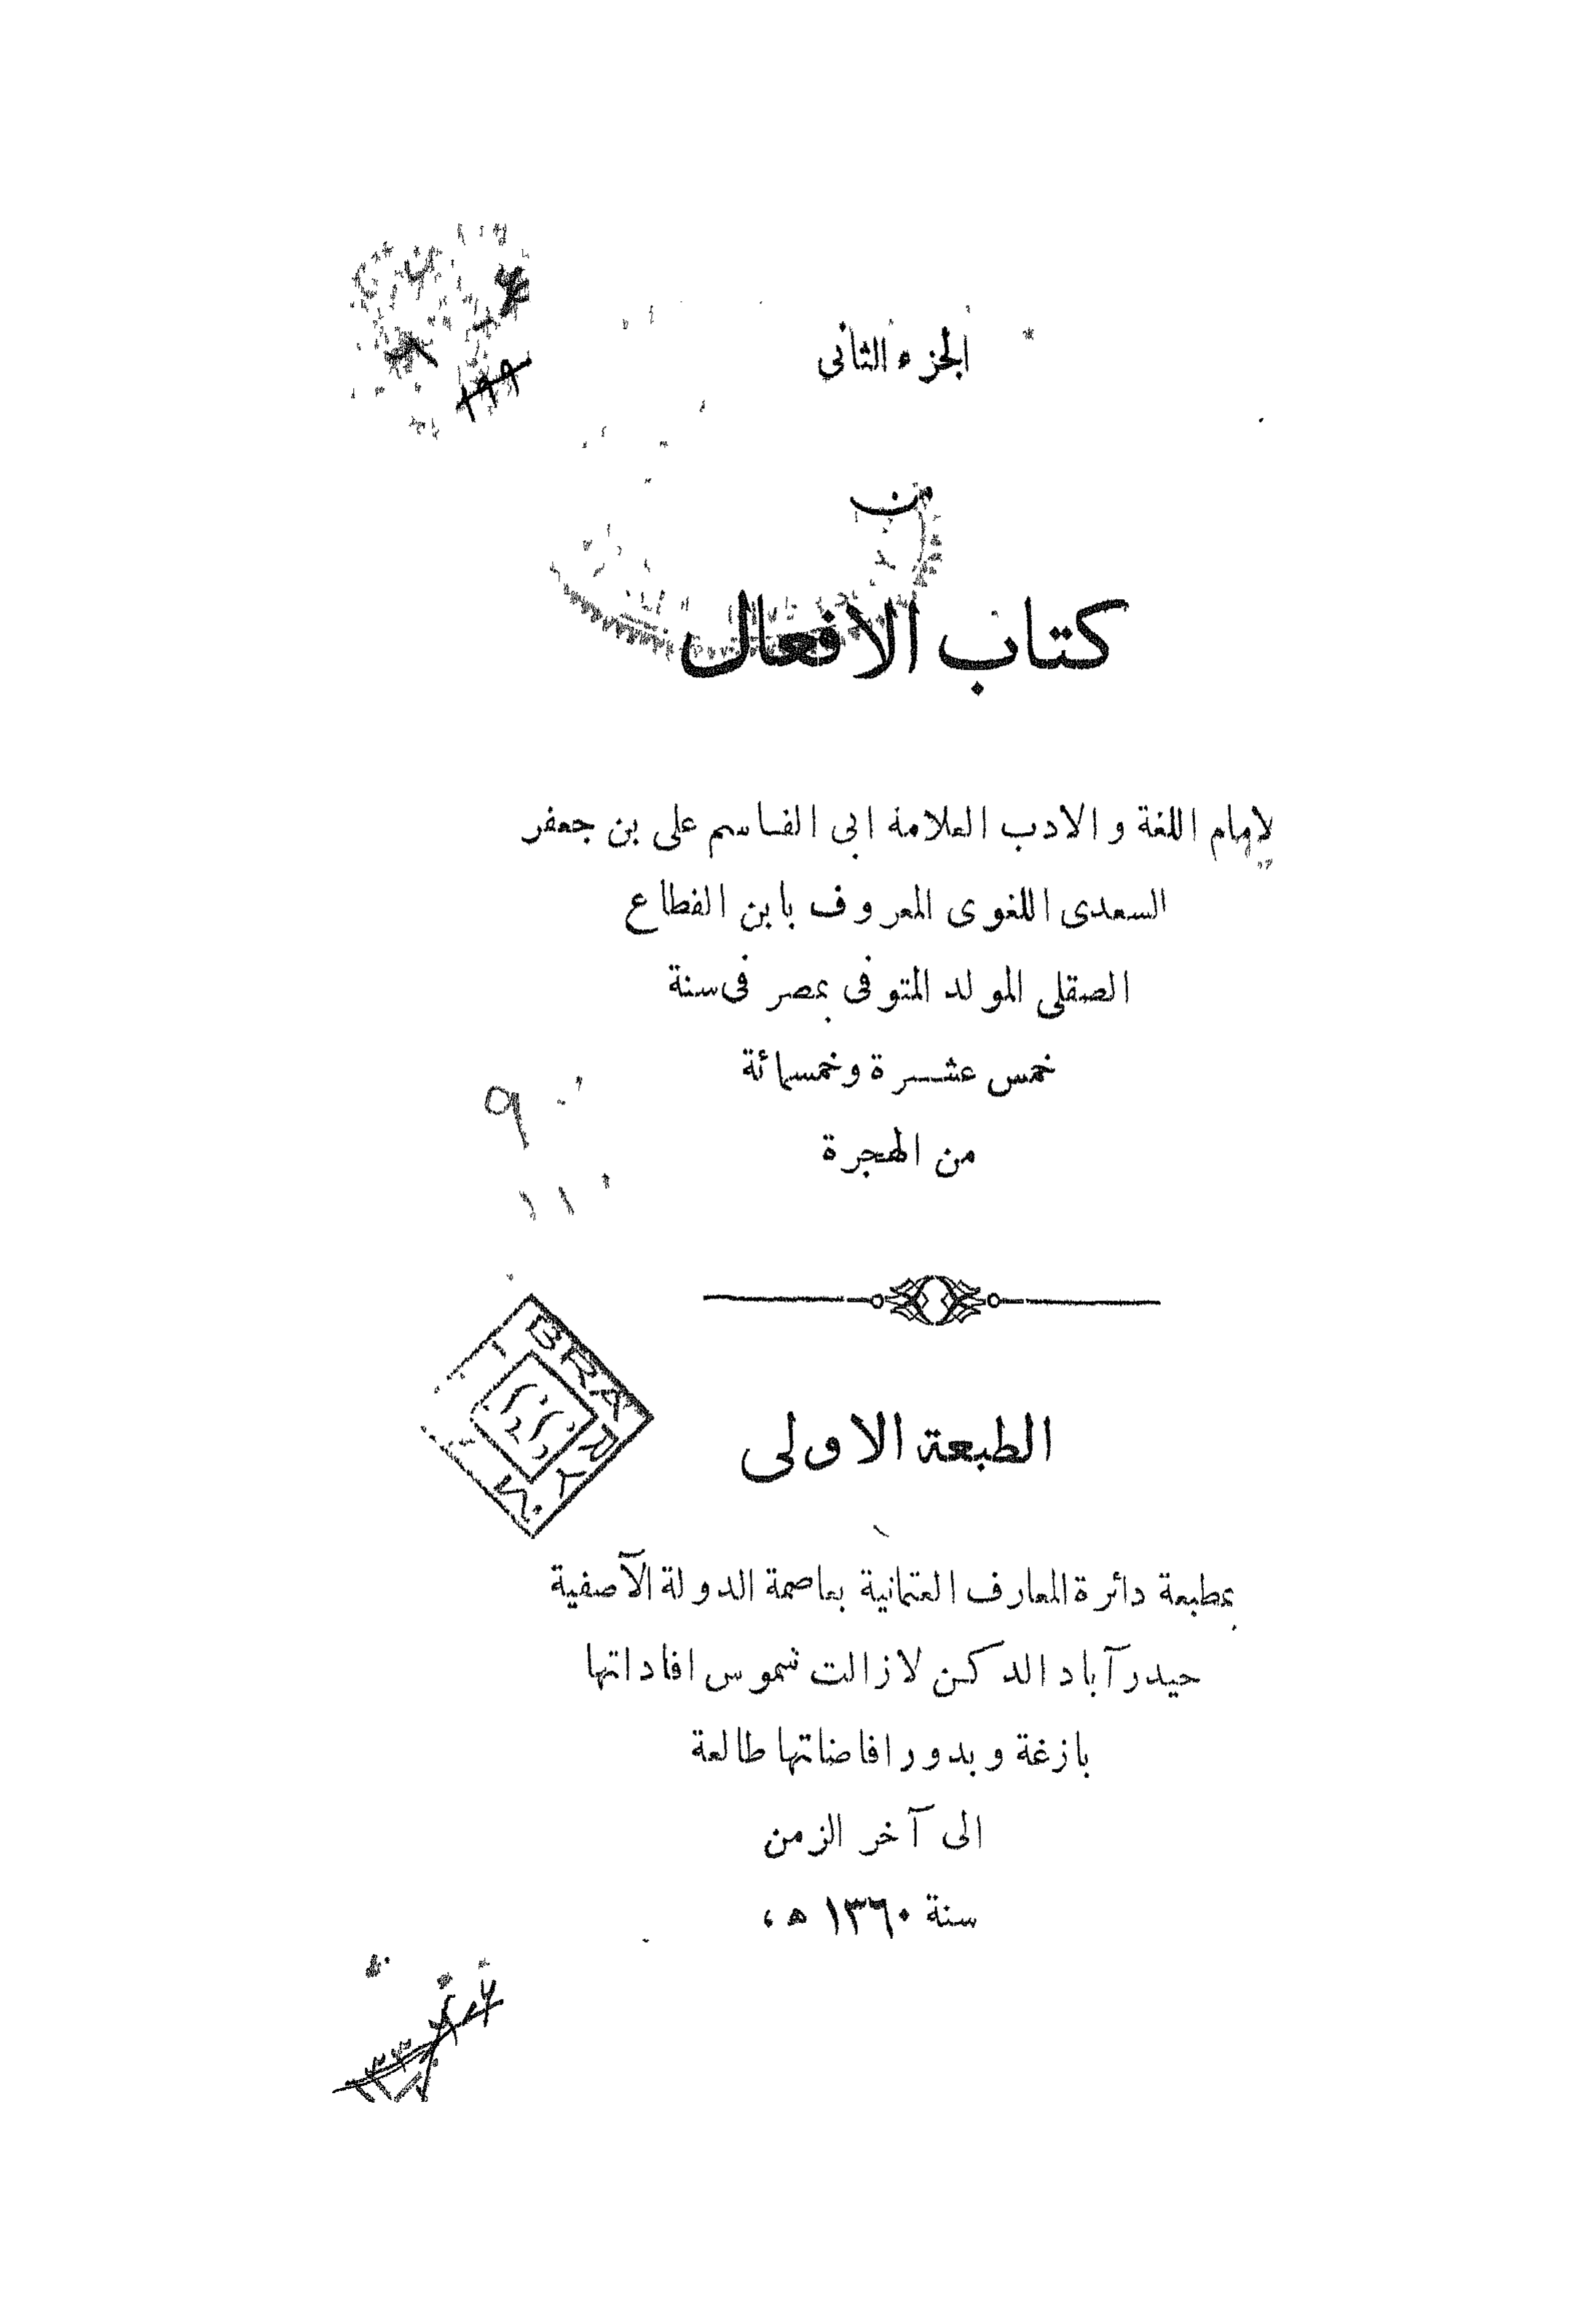 الجزء الثانى
من
كتاب الافعال
لإمام اللغة و الادب العلامة ابى القاسم على بن جعفر
السعدى اللغوى المعروف بابن القطاع
الصقلى المولد المتوفى بمصر فى سنة
خمس عشرة وخمسمائة
من الهجرة
١٩٩
٩
١١
LIBRARY
الطبعة الاولى
بمطبعة دائرة المعارف العثمانية بعاصمة الدولة الآصفية
حيدرآباد الدكن لازالت شموس افاداتها
بازغة و بدور افاضاتها طالعة
الى آخر الزمن
سنة ١٣٦٠ ھ ،